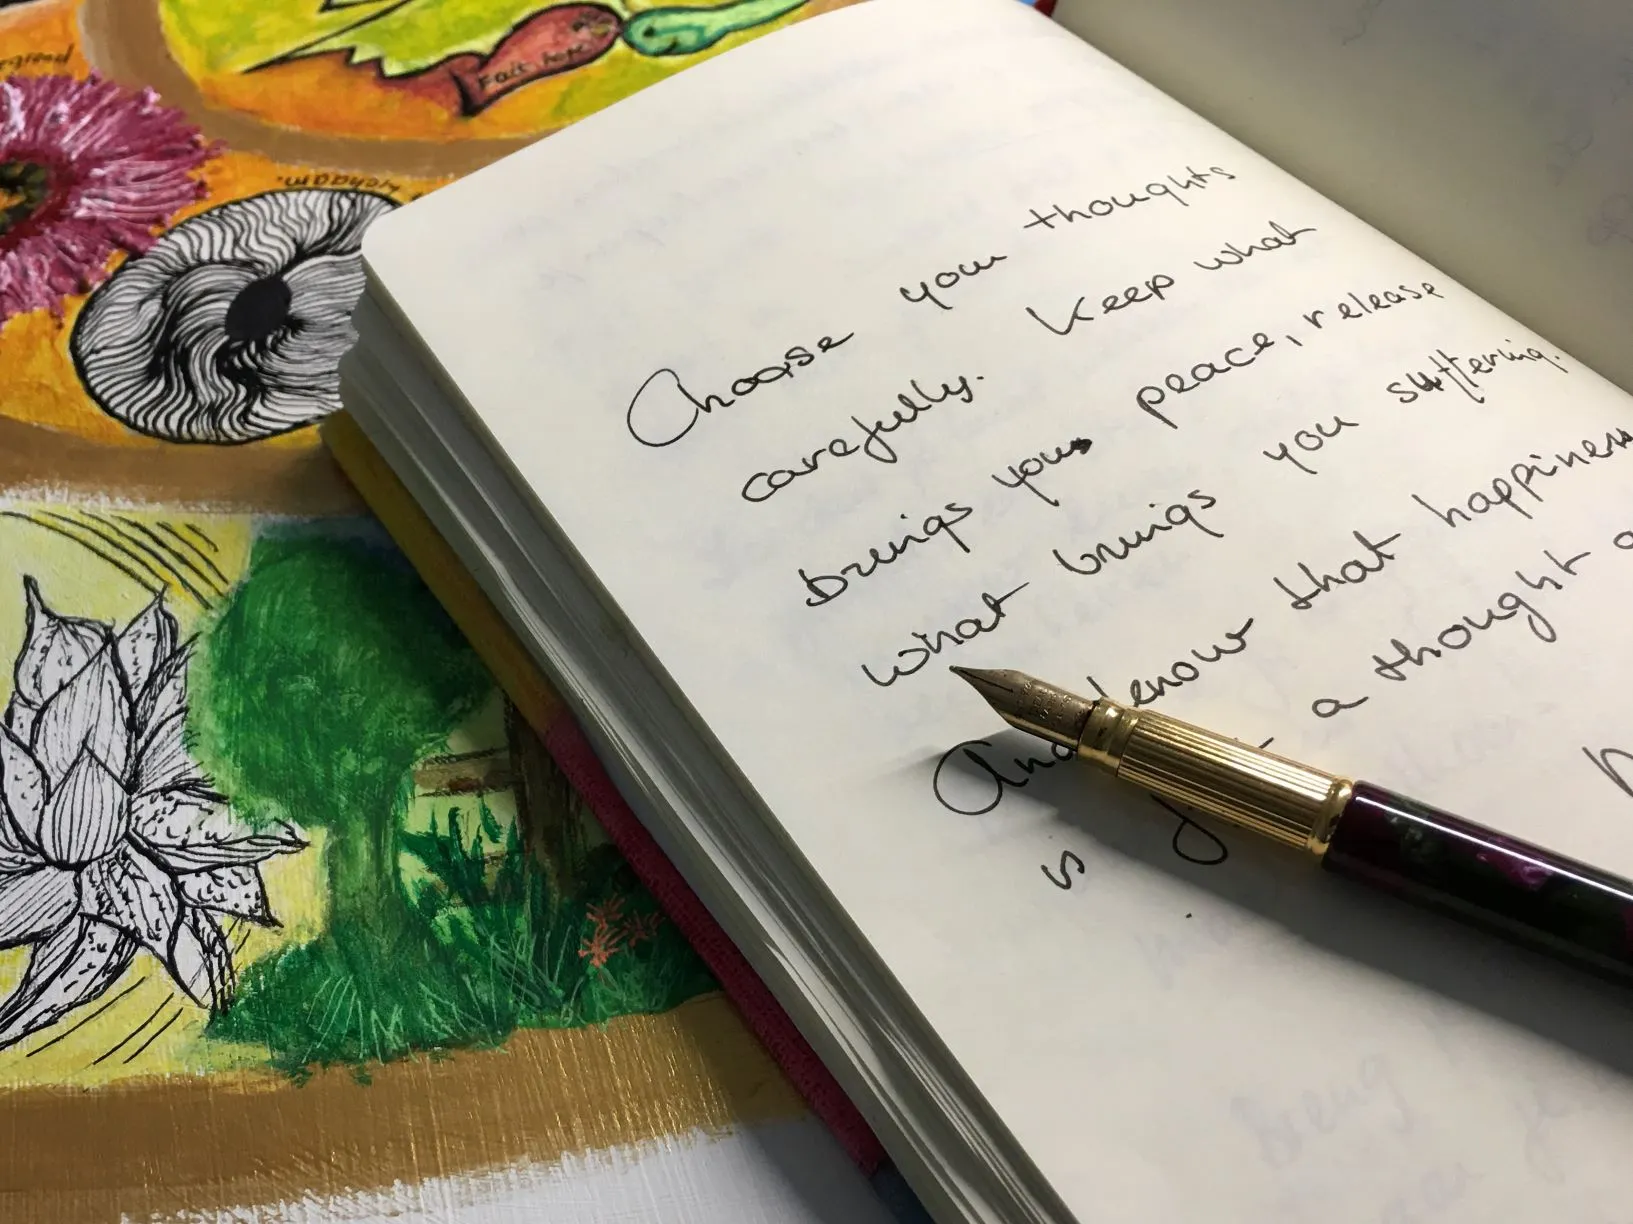 Choose your thoughts
carefully. Keep what
brings you peace, release
what brings you suffering.
And know that happiness
is just a thought